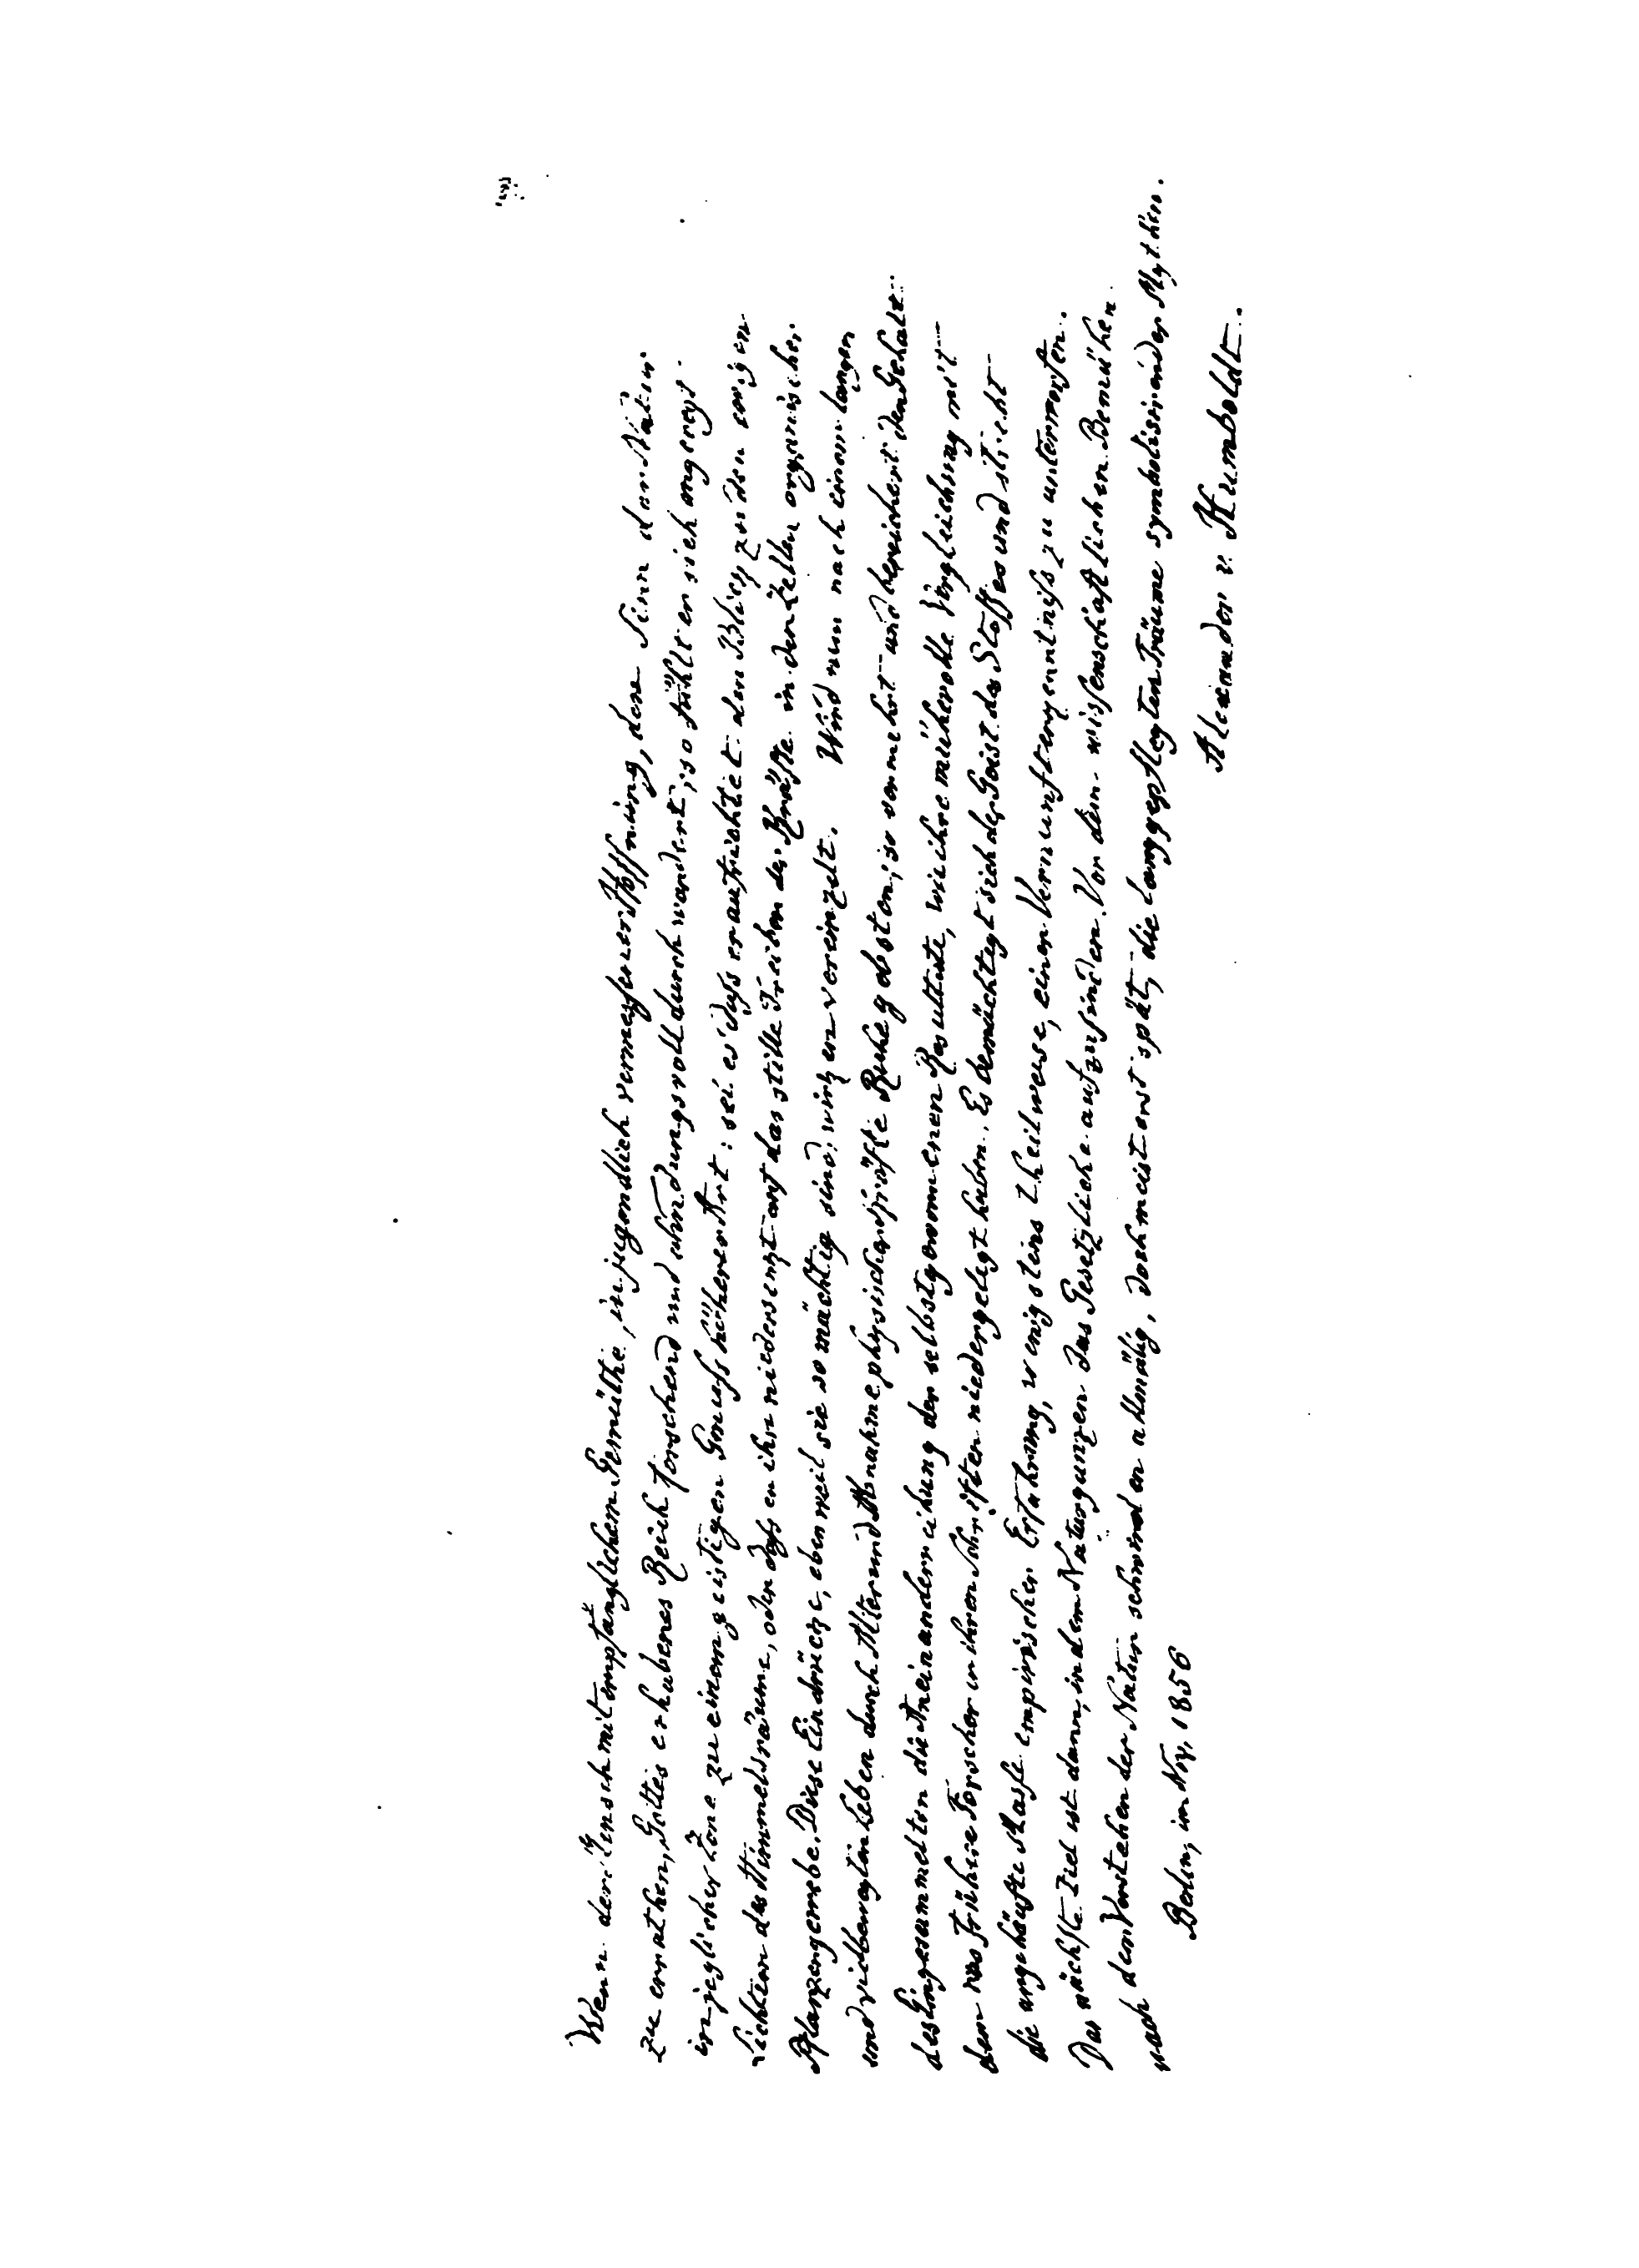 Wenn der Mensch mit empfänglichem Gemüthe, in jugendlich vermessener Hoffnung, den Sinn der Natur
zu errathen, Gottes erhabenes Reich forschend und ahndungsvoll durchwandert; so fühlt er sich angeregt
in jeglicher Zone zu einem geistigen Genuss höherer Art: sei es dass er aufrichtet den Blick zu den ewigen
Lichtern der Himmelsräume, oder dass er ihn niedersenkt auf das stille Treiben der Kräfte in den Zellen organischer
Pflanzengewebe. Diese Eindrücke, eben weil sie so mächtig sind, wirken vereinzelt. Wird nun nach einem langen
und vielbewegten Leben durch Alter und Abnahme physischer Kräfte Ruhe geboten; so vermehrt und bereichert den Gehalt
des Eingesammelten die Aneinanderreihung der selbstgewonnenen Resultate, wie ihre mühevolle Vergleichung mit
dem was frühere Forscher in ihren Schriften niedergelegt haben. Es bemächtigt sich der Geist des Stoffes und strebt
die angehäufte Masse empirischer Erfahrung, wenigstens theilweise, einer Vernunfterkenntniss zu unterwerfen.
Das nächste Ziel ist dann, in dem Naturganzen das Gesetzliche aufzufinden. Vor dem wissenschaftlichen Bemühen
nach dem Verstehen der Natur schwinden allmälig, doch meist erst spät, die langgepflegten Träume symbolisirender Mythen.
Berlin, im Nov. 1856
Alexander v. Humboldt.